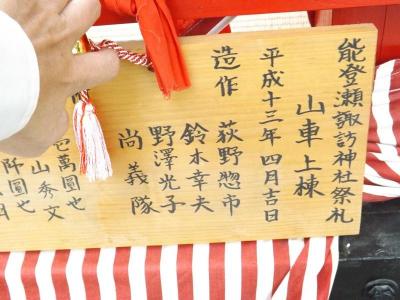 能登瀬諏訪神社祭礼
山車上棟
平成十三年四月吉日
造作
荻野惣市
鈴木幸夫
野澤光子
尚義隊
萬圓也
山秀文
圓也